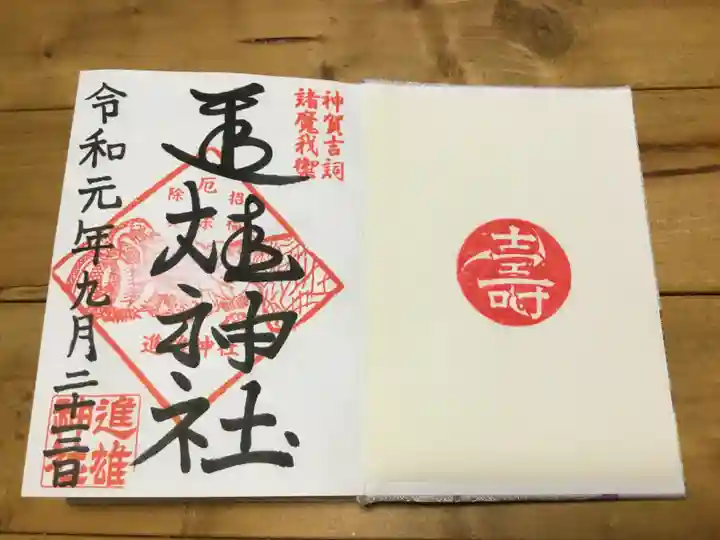 神賀吉詞
諸魔我禦
進雄神社
令和元年九月二十三日
厄除
招福
進雄神社
進雄神社
壽